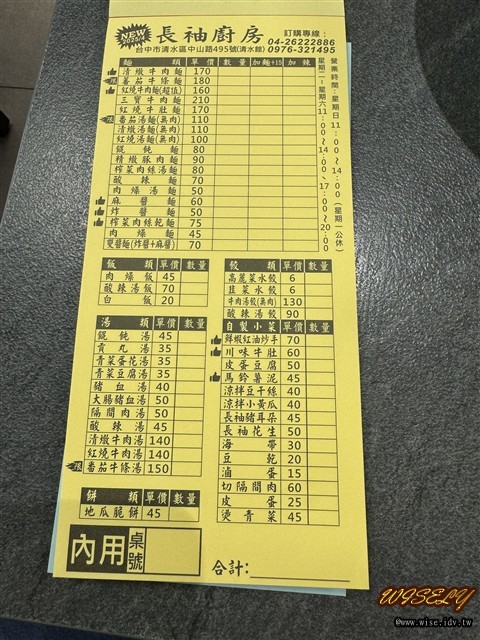 NEW
2025年
長袖廚房
訂購專線:
04-26222886
台中市清水區中山路495號(清水館) 0976-321495
麵類 單價 數量 加麵+15 加辣
清燉牛肉麵 170
限 蕃茄牛條麵 180
紅燒牛肉麵(超值) 160
三寶牛肉麵 210
紅燒牛肚麵 170
限 蕃茄湯麵(無肉) 110
清燉湯麵(無肉) 110
紅燒湯麵(無肉) 100
餛飩麵 80
精燉豚肉麵 90
榨菜肉絲湯麵 80
酸辣麵 70
肉燥湯麵 50
麻醬麵 60
炸醬麵 50
榨菜肉絲乾麵 75
肉燥麵 45
雙醬麵(炸醬+麻醬) 70
營業時間:星期日11:00~14:00(星期一公休)
星期二~星期六11:00~14:00、17:00~20:00
飯類 單價 數量
肉燥飯 45
酸辣湯飯 70
白飯 20
湯類 單價 數量
餛飩湯 45
貢丸湯 35
青菜蛋花湯 35
青菜豆腐湯 35
豬血湯 40
大腸豬血湯 50
隔間肉湯 50
酸辣湯 45
清燉牛肉湯 140
紅燒牛肉湯 140
限 蕃茄牛條湯 150
餅類 單價 數量
地瓜脆餅 45
餃類 單價 數量
高麗菜水餃 6
韭菜水餃 6
牛肉湯餃(無肉) 130
酸辣湯餃 90
自製小菜 單價 數量
鮮蝦紅油炒手 70
川味牛肚 60
皮蛋豆腐 50
馬鈴薯泥 45
涼拌豆干絲 40
涼拌小黃瓜 40
長袖豬耳朵 45
長袖花生 50
海帶 30
豆乾 20
滷蛋 15
切隔間肉 60
皮蛋 25
燙青菜 45
內用 桌號
合計:
WISELY
@www.wise.idv.tw